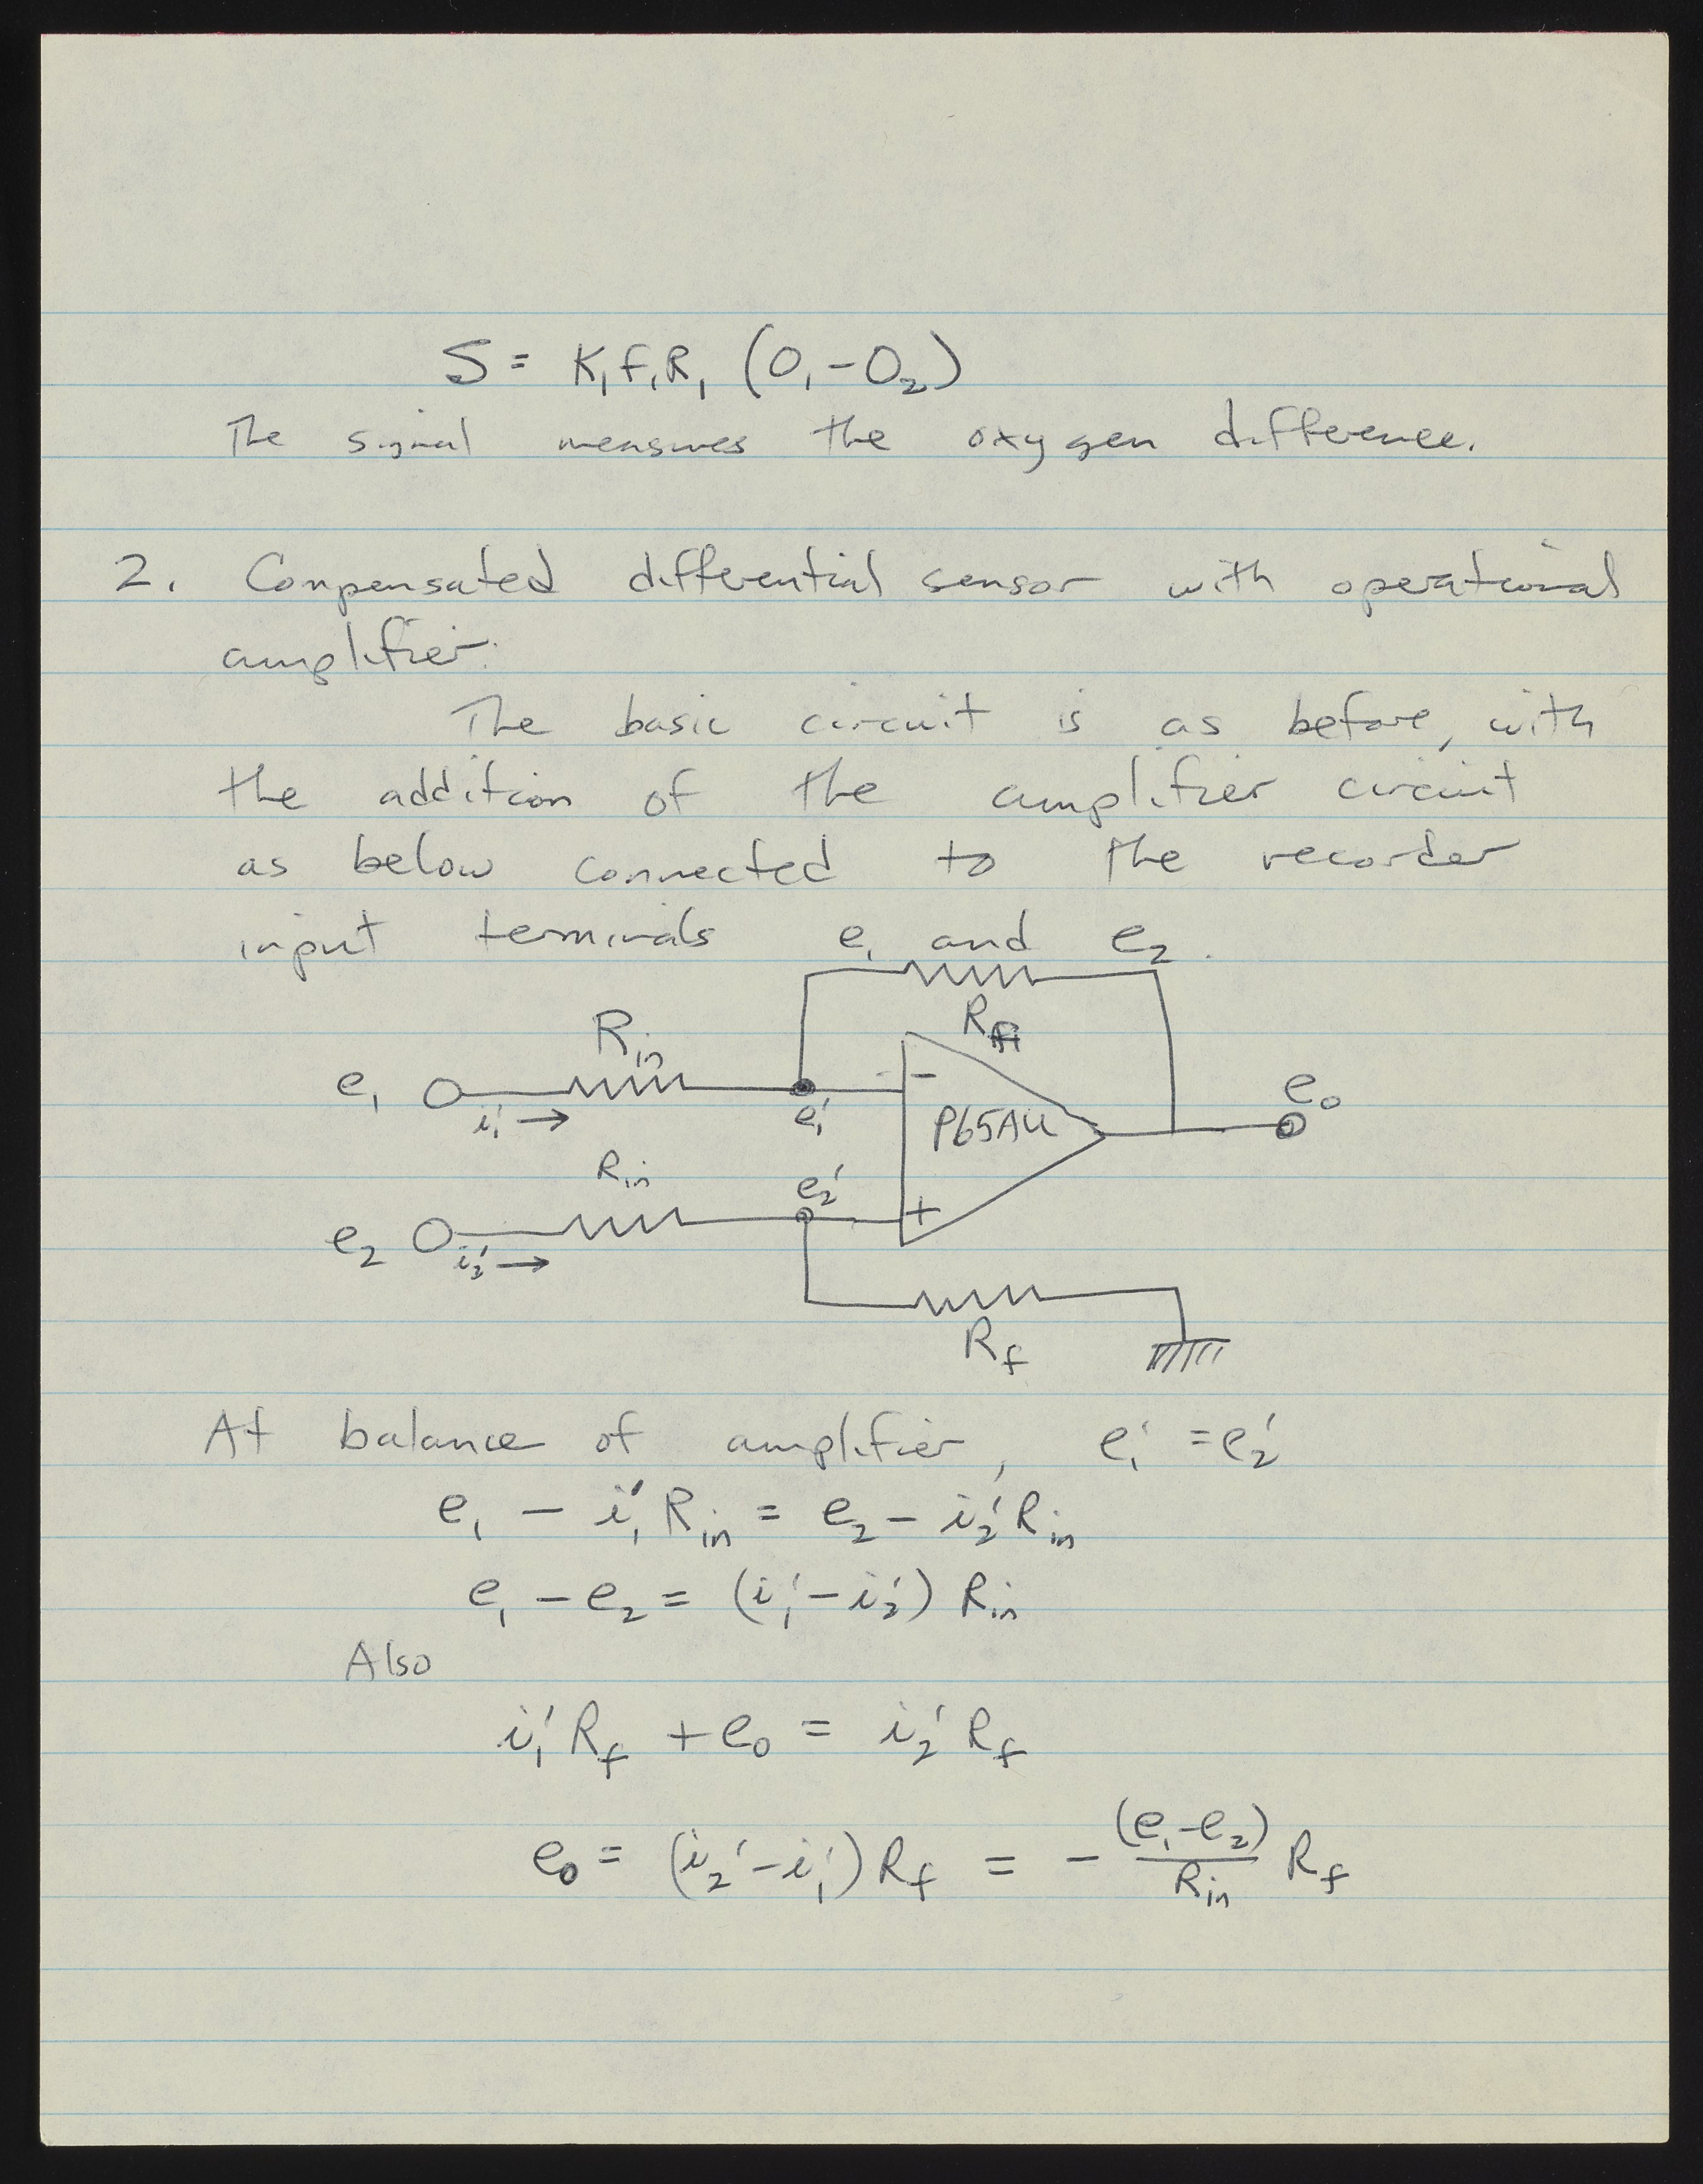 S = K₁f₁R₁ (O₁-O₂)
The signal measures the oxygen difference.
2. Compensated differential sensor with operational
amplifier.
The basic circuit is as before, with
the addition of the amplifier circuit
as below connected to the recorder
input terminals e₁ and e₂.
R_in
e₁
i₁' →
e₁'
-
P65AU
e₀
R_in
e₂'
+
e₂
i₂' →
R_f
At balance of amplifier, e₁' = e₂'
e₁ - i₁' R_in = e₂ - i₂' R_in
e₁ - e₂ = (i₁' - i₂') R_in
Also
i₁' R_f + e₀ = i₂' R_f
e₀ = (i₂' - i₁') R_f = - (e₁-e₂)/R_in R_f